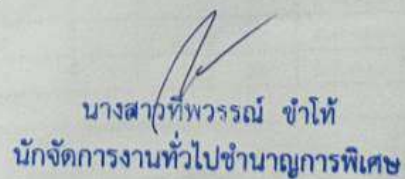 นางสาวทิพวรรณ์ ขำโท้
นักจัดการงานทั่วไปชำนาญการพิเศษ